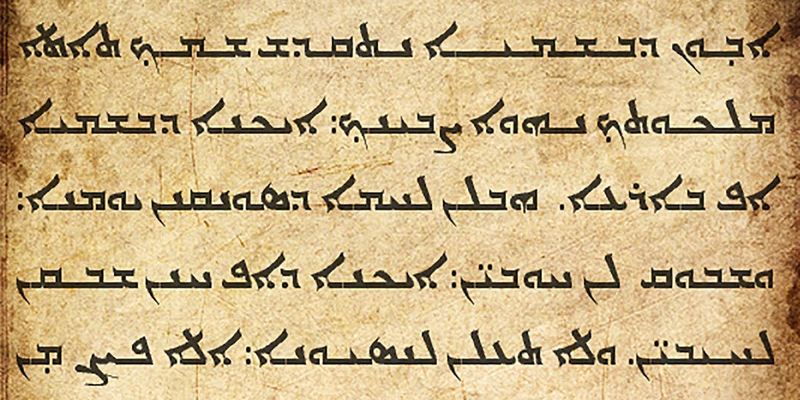 ܐܒ̣ܘܢ ܕܒܫܡܝܐ ܢܬܩܕܫ ܫܡܟ ܬܐܬܐ
ܡܠܟܘܬܟ ܢܗܘܐ ܨܒܝܢܟ: ܐܝܟܢܐ ܕܒܫܡܝܐ
ܐܦ ܒܐܪܥܐ. ܗܒܠܢ ܠܚܡܐ ܕܣܘܢܩܢܢ ܝܘܡܢܐ:
ܘܫܒܘܩ ܠܢ ܚܘܒܝ̈ܢ: ܐܝܟܢܐ ܕܐܦ ܚܢܢ ܫܒܩܢ
ܠܚܝܒܝ̈ܢ. ܘܠܐ ܬܥܠܢ ܠܢܣܝܘܢܐ: ܐܠܐ ܦܨܢ ܡ̣ܢ